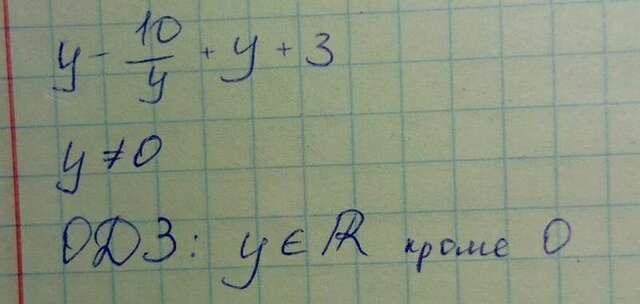 y - 10/y + y + 3
y ≠ 0
ОДЗ: y ∈ ℝ кроме 0